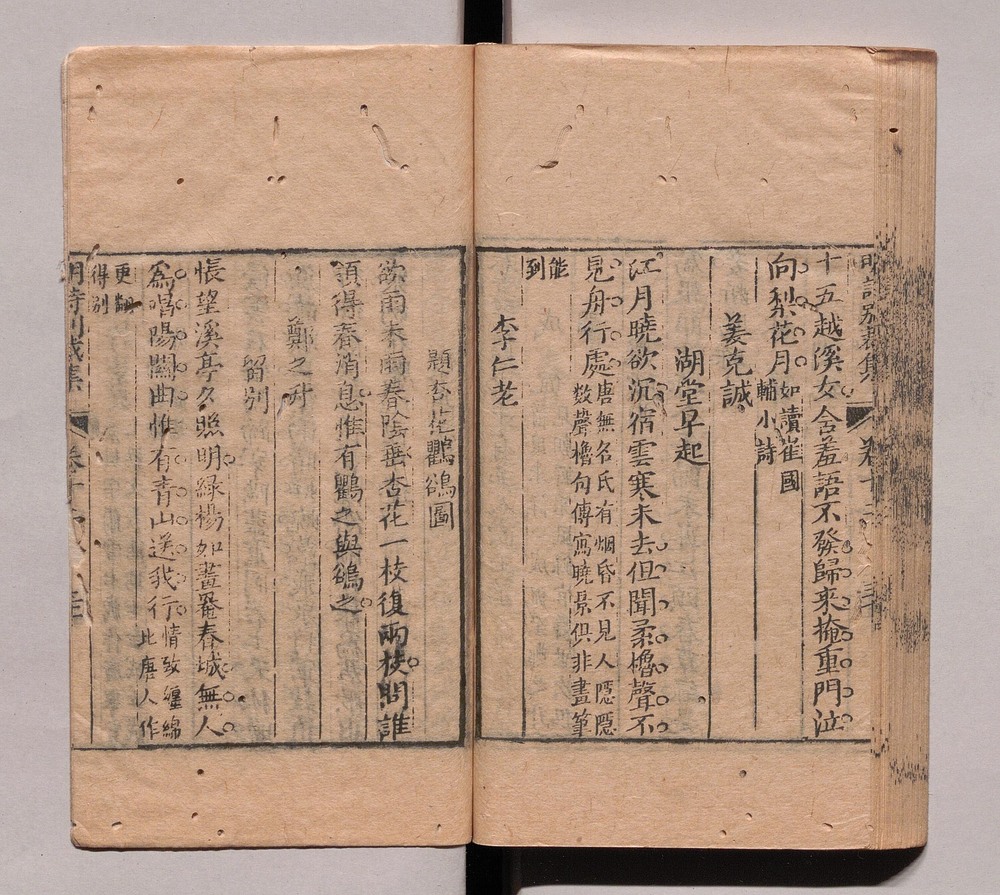 明詩別裁集 卷十二
十五越溪女含羞語不發歸來掩重門泣
向梨花月如讀崔國
輔小詩
姜克誠
湖堂早起
江月曉欲沉宿雲寒未去但聞柔櫓聲不
見舟行處唐無名氏有烟昏不見人隱隱
數聲櫓句傳寫曉景俱非畫筆
能
到
李仁老
題杏花鸜鵒圖
欲雨未雨春陰垂杏花一枝復兩枝問誰
領得春消息惟有鸜之與鵒之
鄭之升
留別
悵望溪亭夕照明綠楊如畫罨春城無人
為唱陽關曲惟有青山送我行情致纏綿
比唐人作
更
得別
明詩別裁集 卷十二